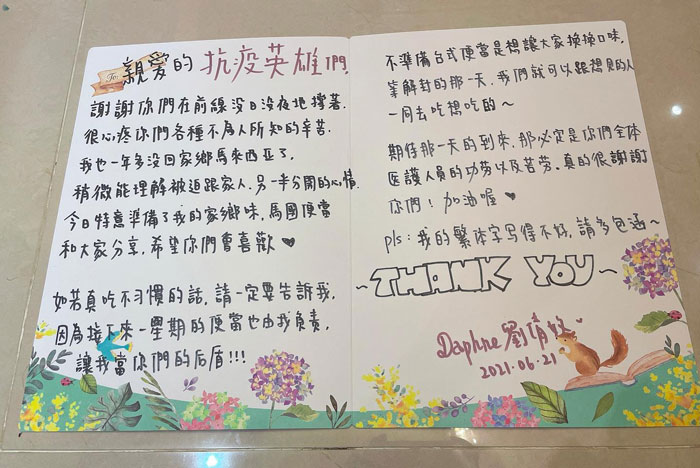 To:
親愛的 抗疫英雄們
謝謝你們在前線没日没夜地撐著.
很心疼你們各種不為人所知的辛苦.
我也一年多没回家鄉馬來西亞了.
稍微能理解被迫跟家人.另一半分開的心情
今日特意準備了我的家鄉味,馬國便當
和大家分享,希望你們會喜歡♥
如若真吃不習慣的話,請一定要告訴我.
因為接下來一星期的便當也由我負責,
讓我當你們的后盾!!!
不準備台式便當是想讓大家換換口味,
等解封的那一天,我們就可以跟想見的人
一同去吃想吃的~
期待那一天的到來,那必定是你們全体
医護人員的功劳以及苦劳.真的很謝謝
你們!加油喔♥
pls:我的繁体字写得不好,請多包涵~
~THANK YOU~
Daphne 劉倩妏
2021.06.21